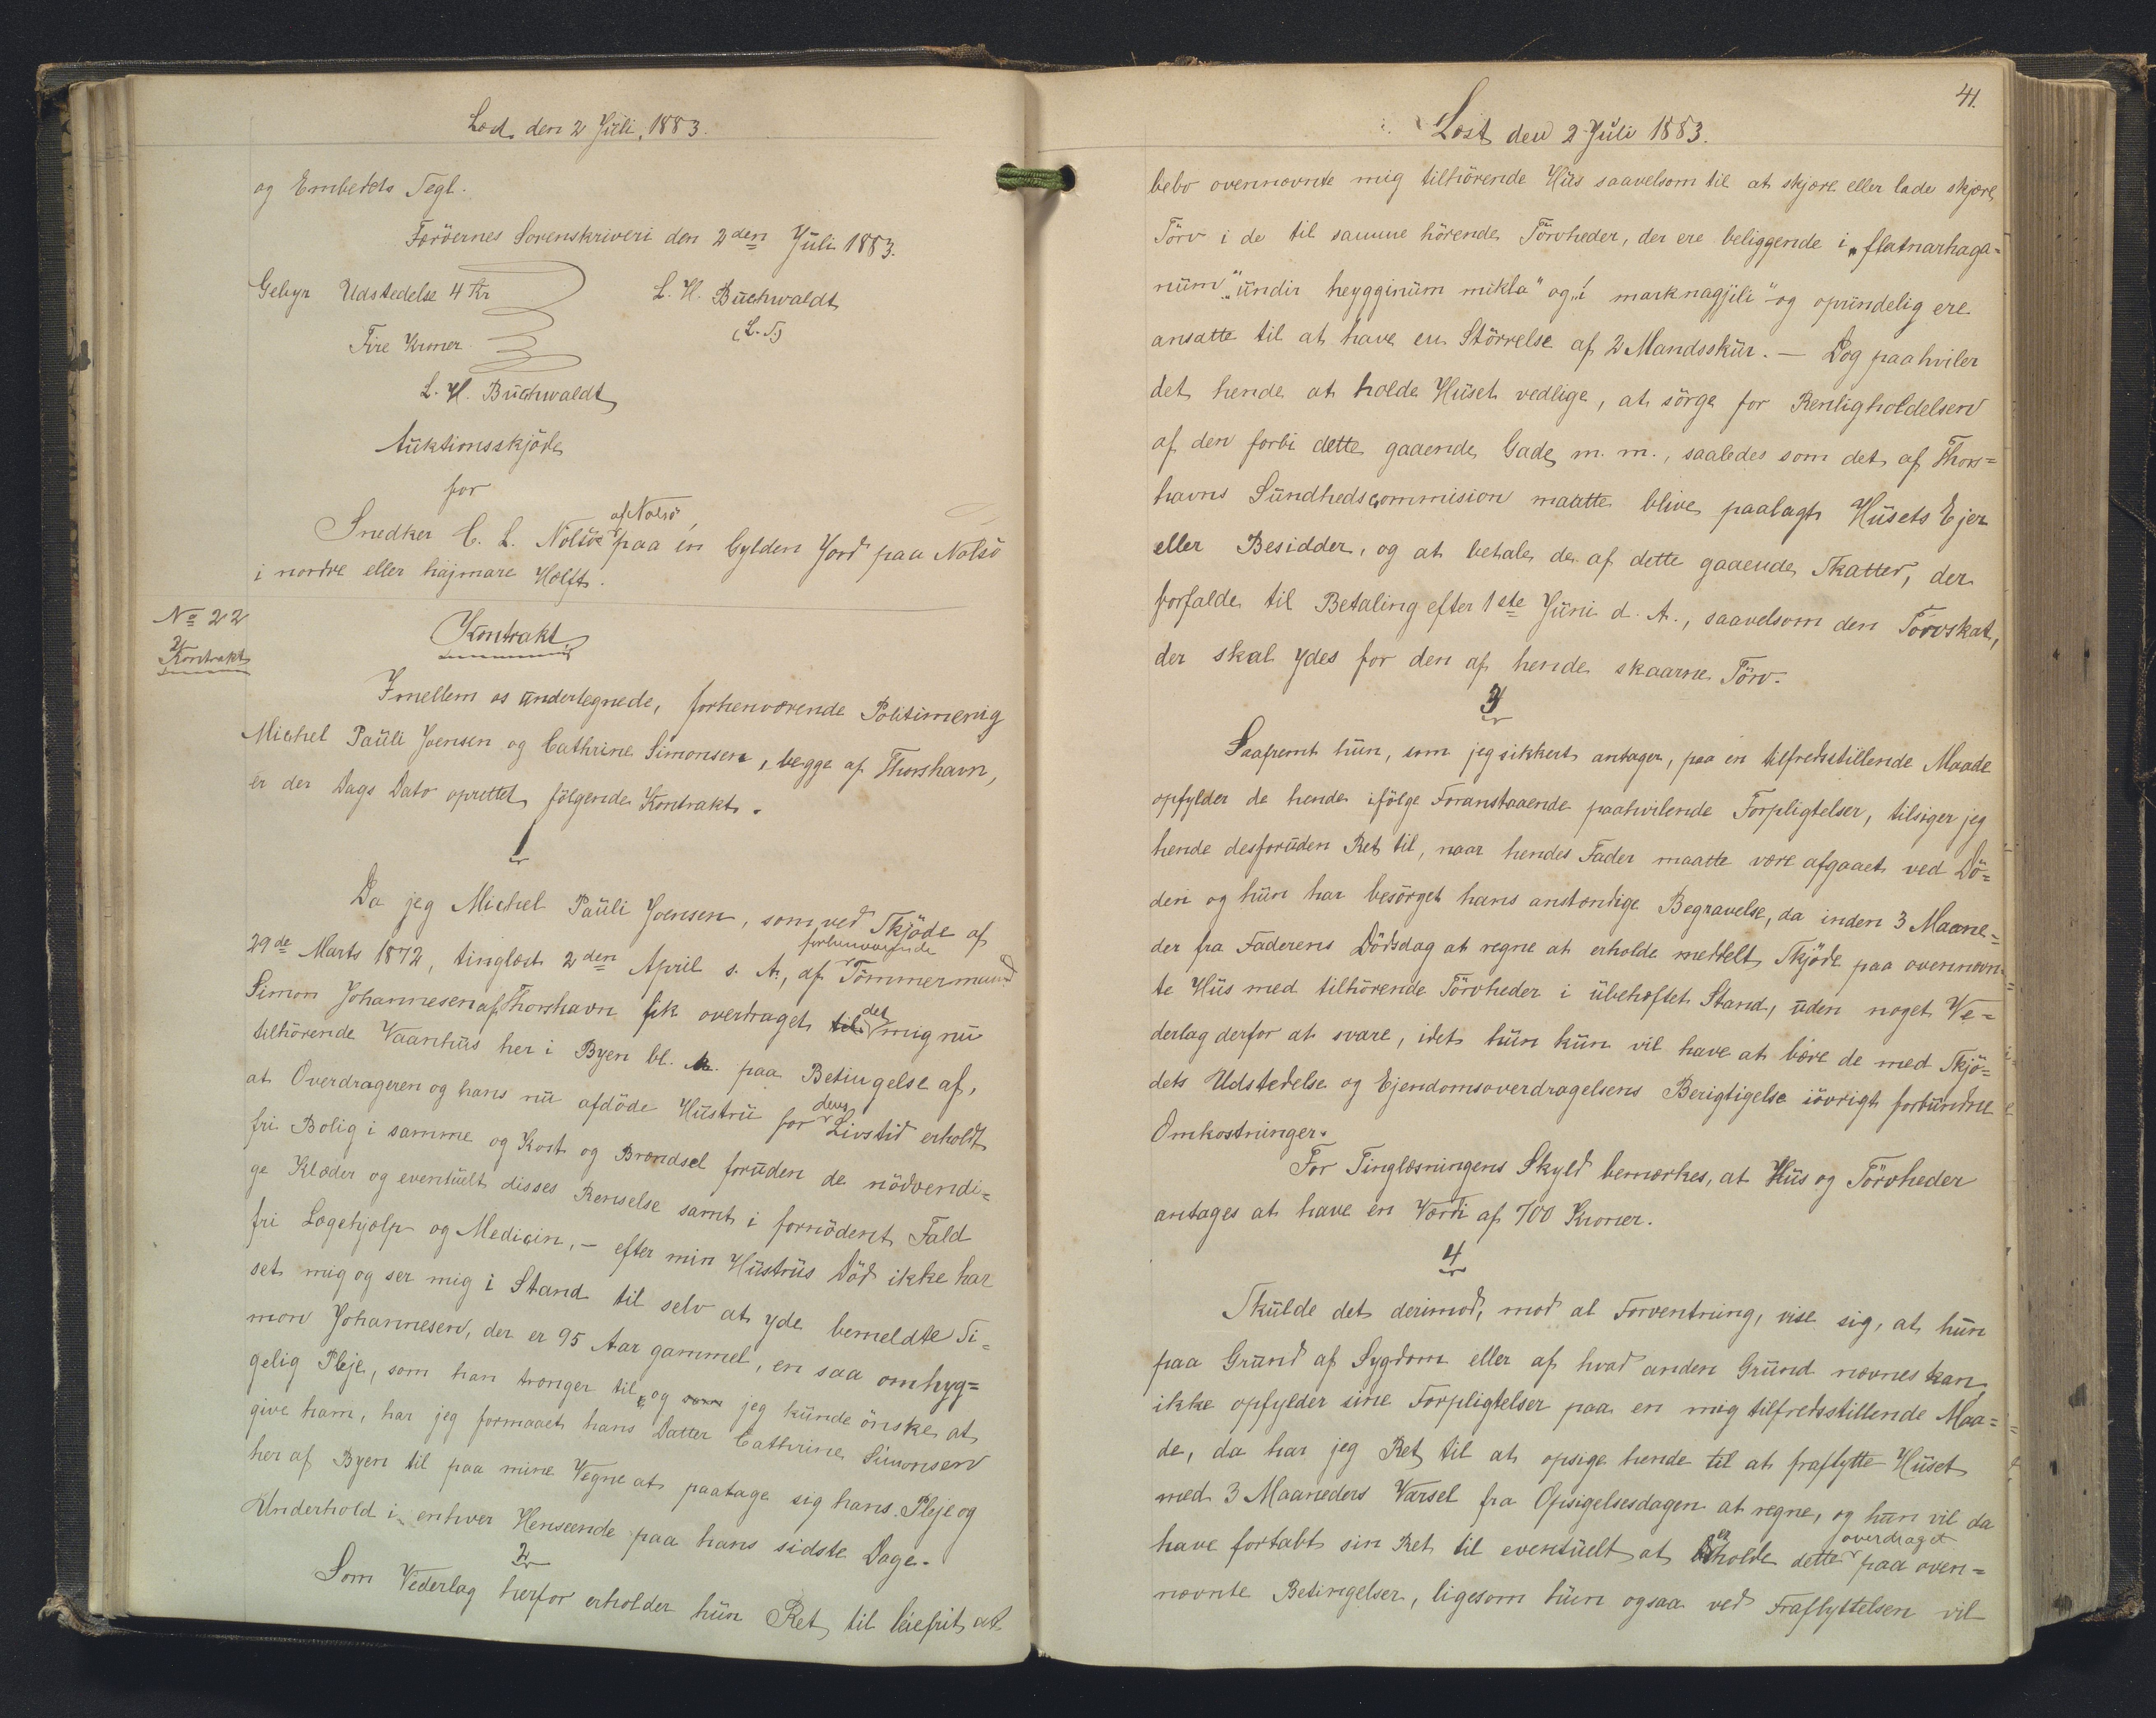 Læst den 2 Juli, 1883.
og Embedets Segl.
Færöernes Sorenskriveri den 2den Juli 1883.
Gebyr Udstedelse 4 Kr
L. H. Buchwaldt
Fire Kroner
(L. S.)
L. H. Buchwaldt
Auktionsskjöde
for
Snedker C. L. Nolsöe af Nolsö paa en Gylden Jord paa Nolsö
i nordre eller hajmare Hælft.
No 22
Kontrakt
Kontrakt
Imellem os undertegnede, forhenværende Politimenig
Michel Pauli Joensen og Cathrine Simonsen, begge af Thorshavn,
er der Dags Dato oprettet følgende Kontrakt.
1
Da jeg Michel Pauli Joensen, som ved Skjöde af
29de Marts 1872, tinglæst 2den April s. A., af forhenværende Tömmermand
Simon Johannesen af Thorshavn fik overtraget det mig nu
tilhörende Vaanhus her i Byen bl. A. paa Betingelse af,
at Overdrageren og hans nu afdöde Hustru for deres Livstid erholdt
fri Bolig i samme og Kost og Brændsel foruden de nödvendi=
ge Klæder og eventuelt disses Renselse samt i fornödent Fald
fri Lægehjælp og Medicin, – efter min Hustrus Död ikke har
set mig og ser mig i Stand til selv at yde bemeldte Si=
mon Johannesen, der er 95 Aar gammel, en saa omhyg=
gelig Pleje, som han trænger til, og som jeg kunde önske at
give ham, har jeg formaaet hans Datter Cathrine Simonsen
her af Byen til paa mine Vegne at paatage sig hans Pleje og
Underhold i enhver Henseende paa hans sidste Dage.
2
Som Vederlag herfor erholder hun Ret til leiefrit at
41.
Læst den 2 Juli 1883.
bebo ovennævnte mig tilhörende Hus saavelsom til at skjære eller lade skjære
Törv i de til samme hörende Törvheder, der ere beliggende i „flatnarhaga=
num" „undir heygginum mikla" og „í marknagjili" og oprindelig ere
ansatte til at have en Störrelse af 2 Mandsskur. – Dog paahviler
det hende at holde Huset vedlige, at sörge for Renligholdelsen
af den forbi dette gaaende Gade m. m., saaledes som det af Thors=
havns Sundhedscommision maatte blive paalagt Husets Ejer
eller Besidder, og at betale de af dette gaaende Skatter, der
forfalde til Betaling efter 1ste Juni d. A., saavelsom den Törvskat,
der skal ydes for den af hende skaarne Törv.
3
Saafremt hun, som jeg sikkert antager, paa en tilfredsstillende Maade
opfylder de hende ifölge Foranstaaende paahvilende Forpligtelser, tilsiger jeg
hende desforuden Ret til, naar hendes Fader maatte være afgaaet ved Dö=
den og hun har besörget hans anstændige Begravelse, da inden 3 Maane=
der fra Faderens Dödsdag at regne at erholde meddelt Skjöde paa ovennævn=
te Hus med tilhörende Törvheder i ubehæftet Stand, uden noget Ve=
derlag derfor at svare, idet hun kun vil have at bære de med Skjö=
dets Udstedelse og Ejendomsoverdragelsens Berigtigelse iövrigt forbundne
Omkostninger.
For Tinglæsningens Skyld bemærkes, at Hus og Törvheder
antages at have en Værdi af 700 Kroner.
4
Skulde det derimod, mod al Forventning, vise sig, at hun
paa Grund af Sygdom eller af hvad anden Grund nævnes kan
ikke opfylder sine Forpligtelser paa en mig tilfredsstillende Maa=
de, da har jeg Ret til at opsige hende til at fraflytte Huset
med 3 Maaneders Varsel fra Opsigelsesdagen at regne, og hun vil da
have fortabt sin Ret til eventuelt at erholde dette overdraget paa oven=
nævnte Betingelser, ligesom hun ogsaa ved Fraflyttelsen vil